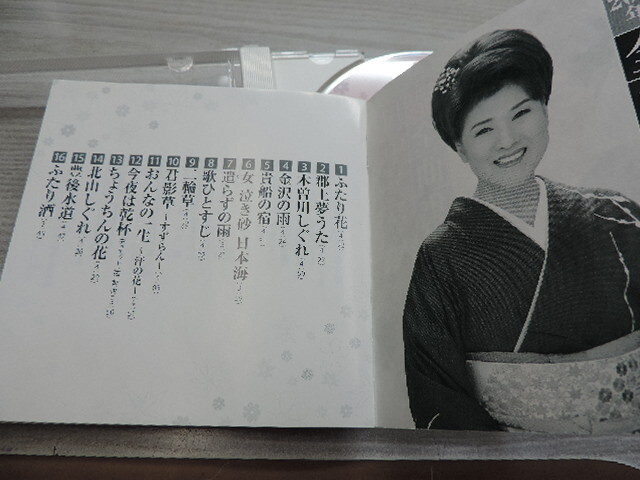 1 ふたり花
2 郡上夢うた
3 木曽川しぐれ
4 金沢の雨
5 貴船の宿
6 女 泣き砂 日本海
7 遣らずの雨
8 歌ひとすじ
9 二輪草
10 君影草 〜すずらん〜
11 おんなの一生 〜汗の花〜
12 今夜は乾杯
13 ちょうちんの花
14 北山しぐれ
15 豊後水道
16 ふたり酒